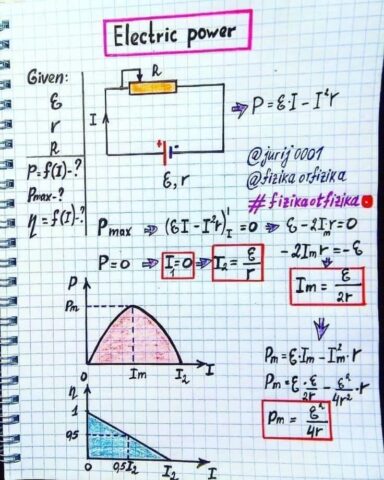 Electric power
Given:
ε
r
R
P=f(I)-?
Pmax-?
η=f(I)-?
R
I
ε, r
⇒ P=ε·I - I²r
@jurij0001
@fizikaotfizika
#fizikaotfizika
Pmax ⇒ (εI - I²r)'I = 0 ⇒ ε-2Imr=0
-2Imr=-ε
P=0 ⇒ I1=0 ⇒ I2=ε/r
Im=ε/2r
P
Pm
0 Im I2 I
Pm=ε·Im-Im²·r
Pm=ε·ε/2r - ε²/4r²·r
Pm=ε²/4r
η
1
0,5
0 0,5I2 I2 I